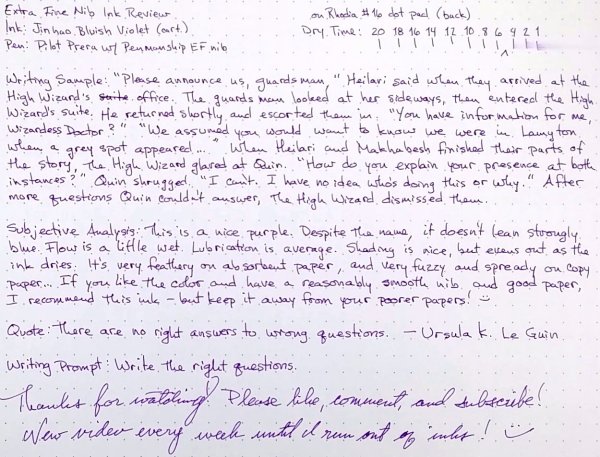 Extra Fine Nib Ink Review
on Rhodia #16 dot pad (back)
Ink: Jinhao Bluish Violet (cart.)
Dry Time: 20 18 16 14 12 10 8 6 4 2 1
Pen: Pilot Prera w/ Penmanship EF nib
Writing Sample: "Please announce us, guardsman," Heilari said when they arrived at the
High Wizard's suite office. The guardsman looked at her sideways, then entered the High
Wizard's suite. He returned shortly and escorted them in. "You have information for me,
Wizardess Doctor?" "We assumed you would want to know we were in Lamyton
when a grey spot appeared..." When Heilari and Makhabesh finished their parts of
the story, the High Wizard glared at Quin. "How do you explain your presence at both
instances?" Quin shrugged. "I can't. I have no idea who's doing this or why." After
more questions Quin couldn't answer, the High Wizard dismissed them.
Subjective Analysis: This is a nice purple. Despite the name, it doesn't lean strongly
blue. Flow is a little wet. Lubrication is average. Shading is nice, but evens out as the
ink dries. It's very feathery on absorbent paper, and very fuzzy and spready on copy
paper... If you like the color and have a reasonably smooth nib and good paper,
I recommend this ink - but keep it away from your poorer papers!
Quote: There are no right answers to wrong questions. - Ursula K. Le Guin
Writing Prompt: Write the right questions.
Thanks for watching! Please like, comment, and subscribe!
New video every week until I run out of inks!